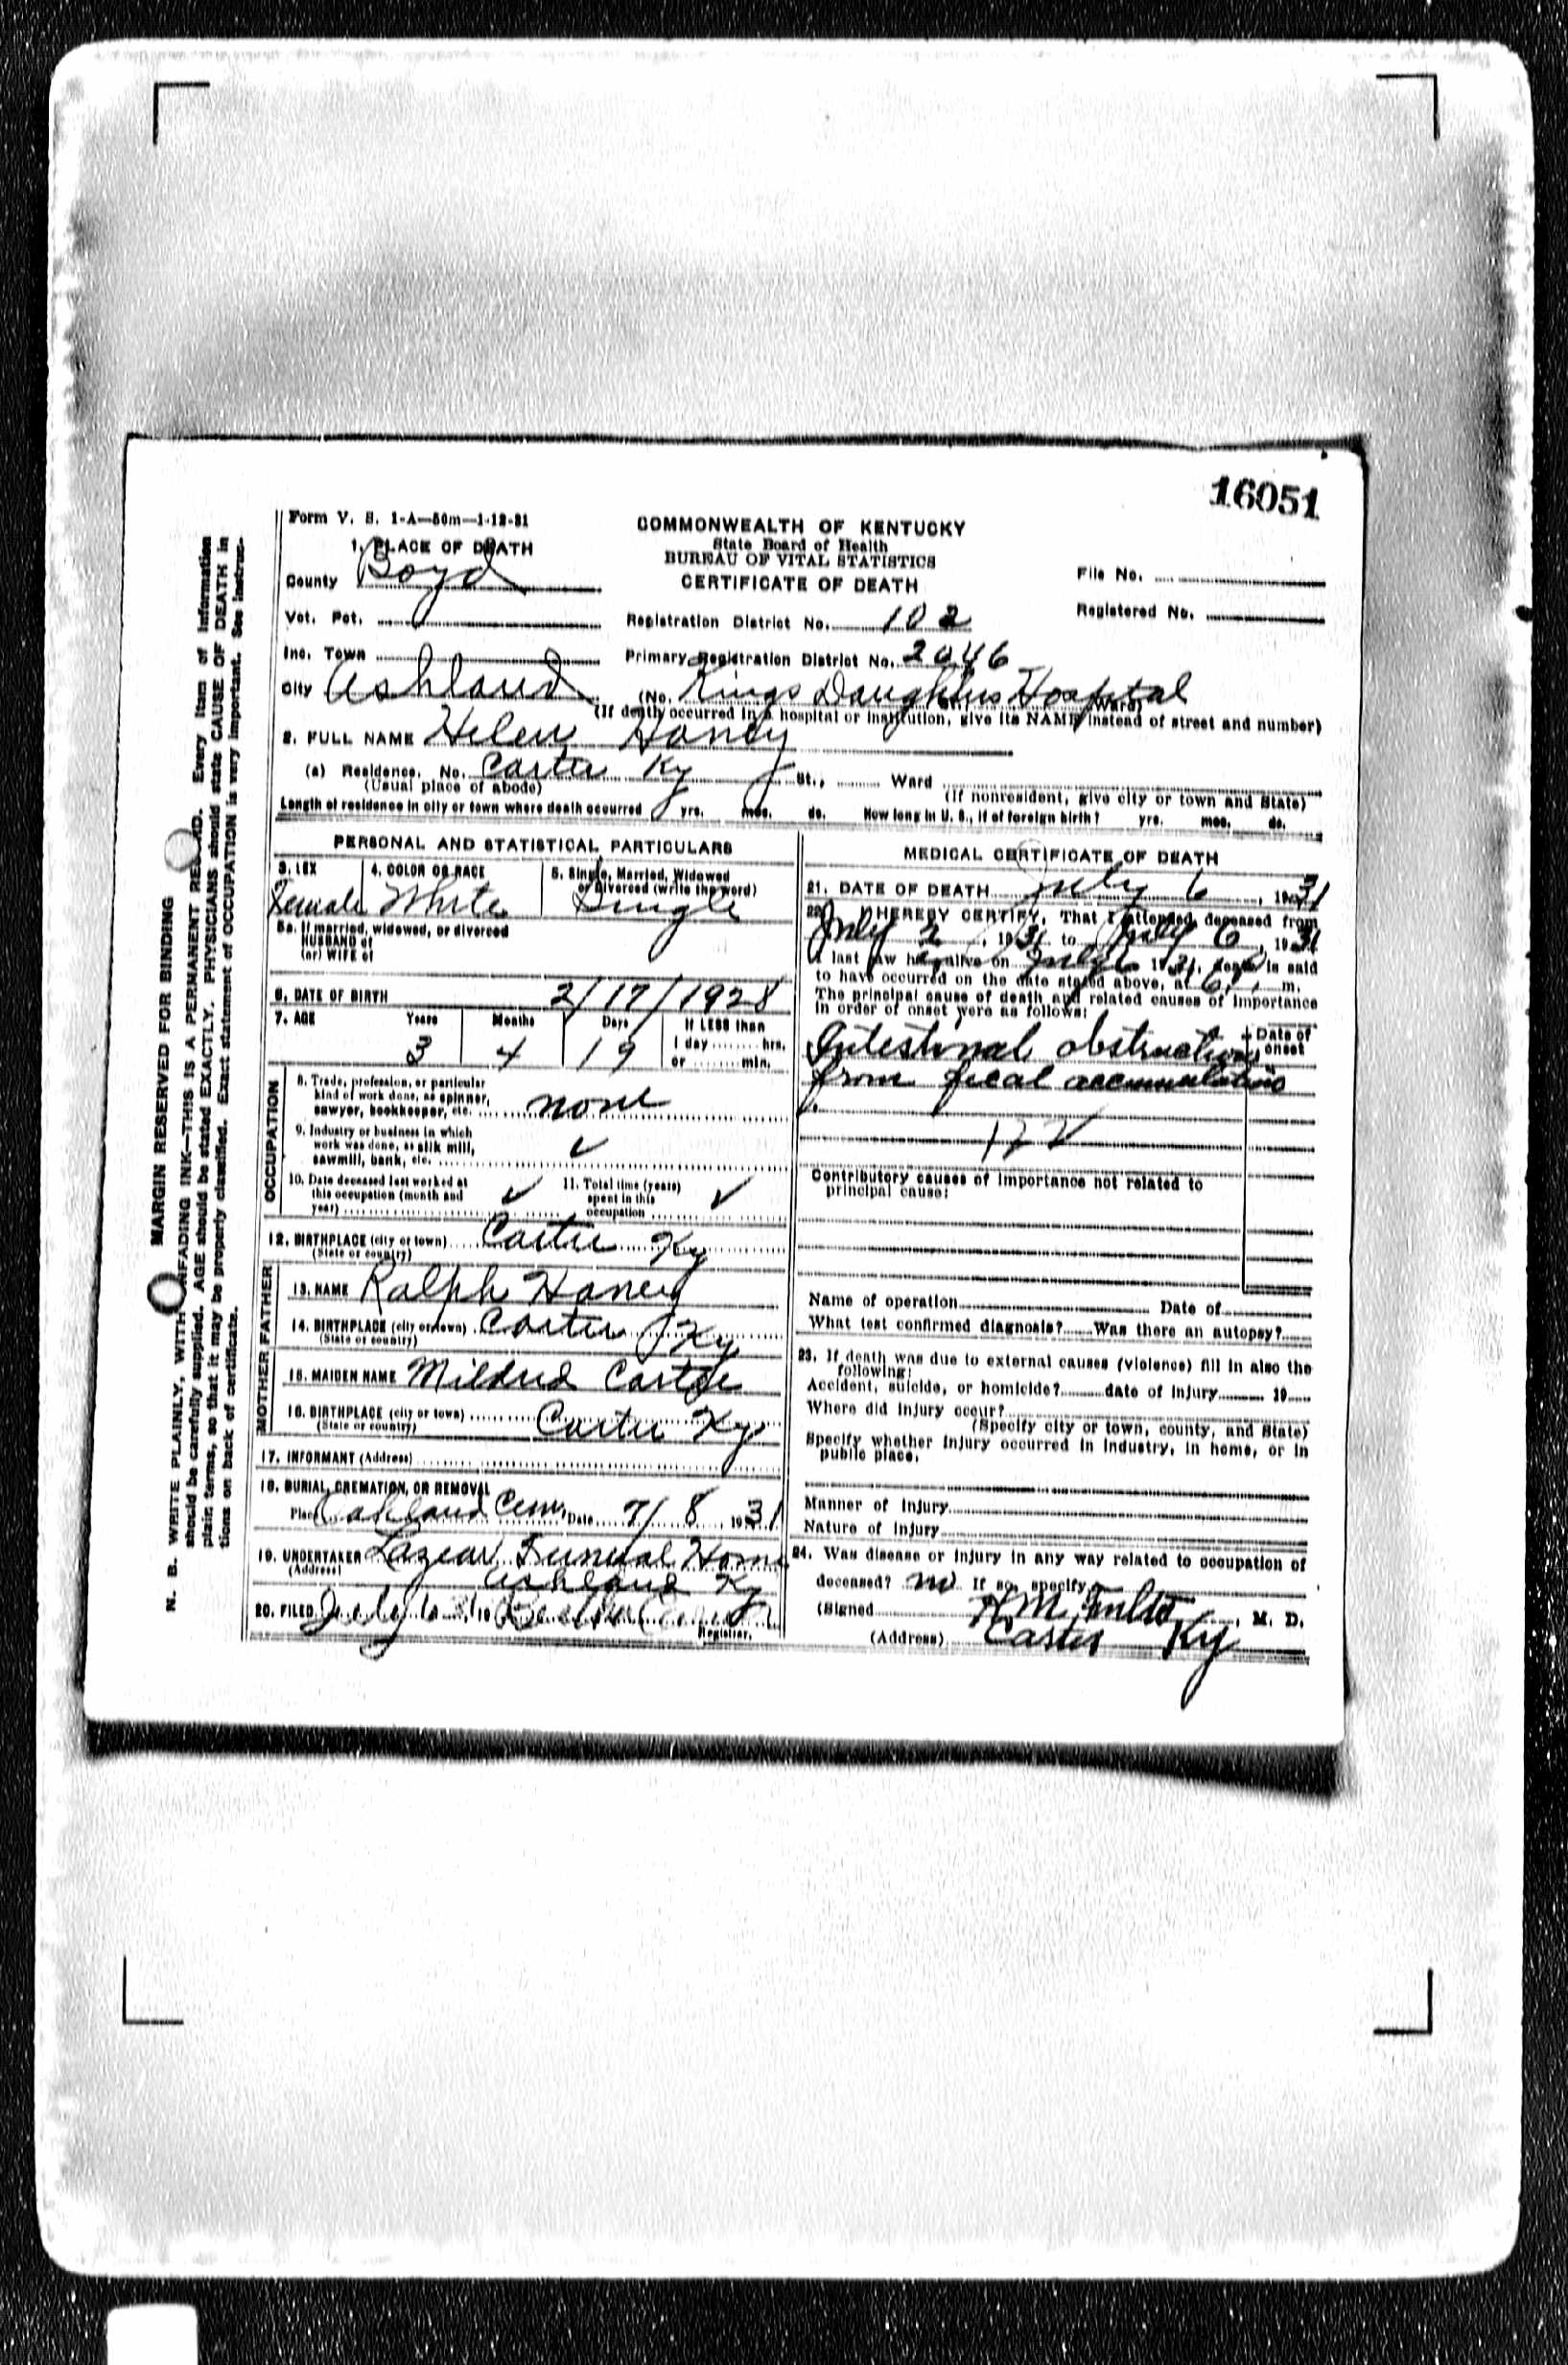 16051
Form V. S. 1-A—50m—1-12-31
COMMONWEALTH OF KENTUCKY
State Board of Health
BUREAU OF VITAL STATISTICS
CERTIFICATE OF DEATH
1. PLACE OF DEATH
County Boyd
File No.
Vot. Pct.
Registration District No. 102
Registered No.
Inc. Town
Primary Registration District No. 2046
City Ashland (No. Kings Daughters Hospital Ward)
(If death occurred in a hospital or institution, give its NAME instead of street and number)
2. FULL NAME Helen Haney
(a) Residence. No. Carter Ky St., Ward
(Usual place of abode) (If nonresident, give city or town and State)
Length of residence in city or town where death occurred yrs. mos. ds. How long in U. S., if of foreign birth? yrs. mos. ds.
PERSONAL AND STATISTICAL PARTICULARS
3. SEX 4. COLOR OR RACE 5. Single, Married, Widowed
or Divorced (write the word)
Female White Single
5a. If married, widowed, or divorced
HUSBAND of
(or) WIFE of
6. DATE OF BIRTH 2/17/1928
7. AGE Years Months Days If LESS than
3 4 19 1 day hrs.
or min.
OCCUPATION
8. Trade, profession, or particular
kind of work done, as spinner,
sawyer, bookkeeper, etc. none
9. Industry or business in which
work was done, as silk mill,
sawmill, bank, etc. ✓
10. Date deceased last worked at
this occupation (month and
year) ✓
11. Total time (years)
spent in this
occupation ✓
12. BIRTHPLACE (city or town) Carter Ky
(State or country)
FATHER
13. NAME Ralph Haney
14. BIRTHPLACE (city or town) Carter Ky
(State or country)
MOTHER
15. MAIDEN NAME Mildred
16. BIRTHPLACE (city or town) Carter Ky
(State or country)
17. INFORMANT (Address)
18. BURIAL, CREMATION, OR REMOVAL
Place Ashland Cem. Date 7/8, 1931
19. UNDERTAKER Lazear Funeral Home
(Address) Ashland Ky
20. FILED July 6 31, 19
Registrar.
MEDICAL CERTIFICATE OF DEATH
21. DATE OF DEATH July 6, 1931
22. I HEREBY CERTIFY, That I attended deceased from
July 2, 1931 to July 6, 1931
I last saw her alive on July 6 1931, death is said
to have occurred on the date stated above, at 6 P. m.
The principal cause of death and related causes of importance
in order of onset were as follows:
Date of
onset
Intestinal obstruction
from fecal accumulations
122
Contributory causes of importance not related to
principal cause:
Name of operation Date of
What test confirmed diagnosis? Was there an autopsy?
23. If death was due to external causes (violence) fill in also the
following:
Accident, suicide, or homicide? date of injury 19
Where did injury occur?
(Specify city or town, county, and State)
Specify whether injury occurred in industry, in home, or in
public place.
Manner of injury
Nature of injury
24. Was disease or injury in any way related to occupation of
deceased? no If so, specify
(Signed , M. D.
(Address) Carter Ky
MARGIN RESERVED FOR BINDING
N. B. WRITE PLAINLY, WITH UNFADING INK—THIS IS A PERMANENT RECORD. Every item of information
should be carefully supplied. AGE should be stated EXACTLY. PHYSICIANS should state CAUSE OF DEATH in
plain terms, so that it may be properly classified. Exact statement of OCCUPATION is very important. See instruc-
tions on back of certificate.